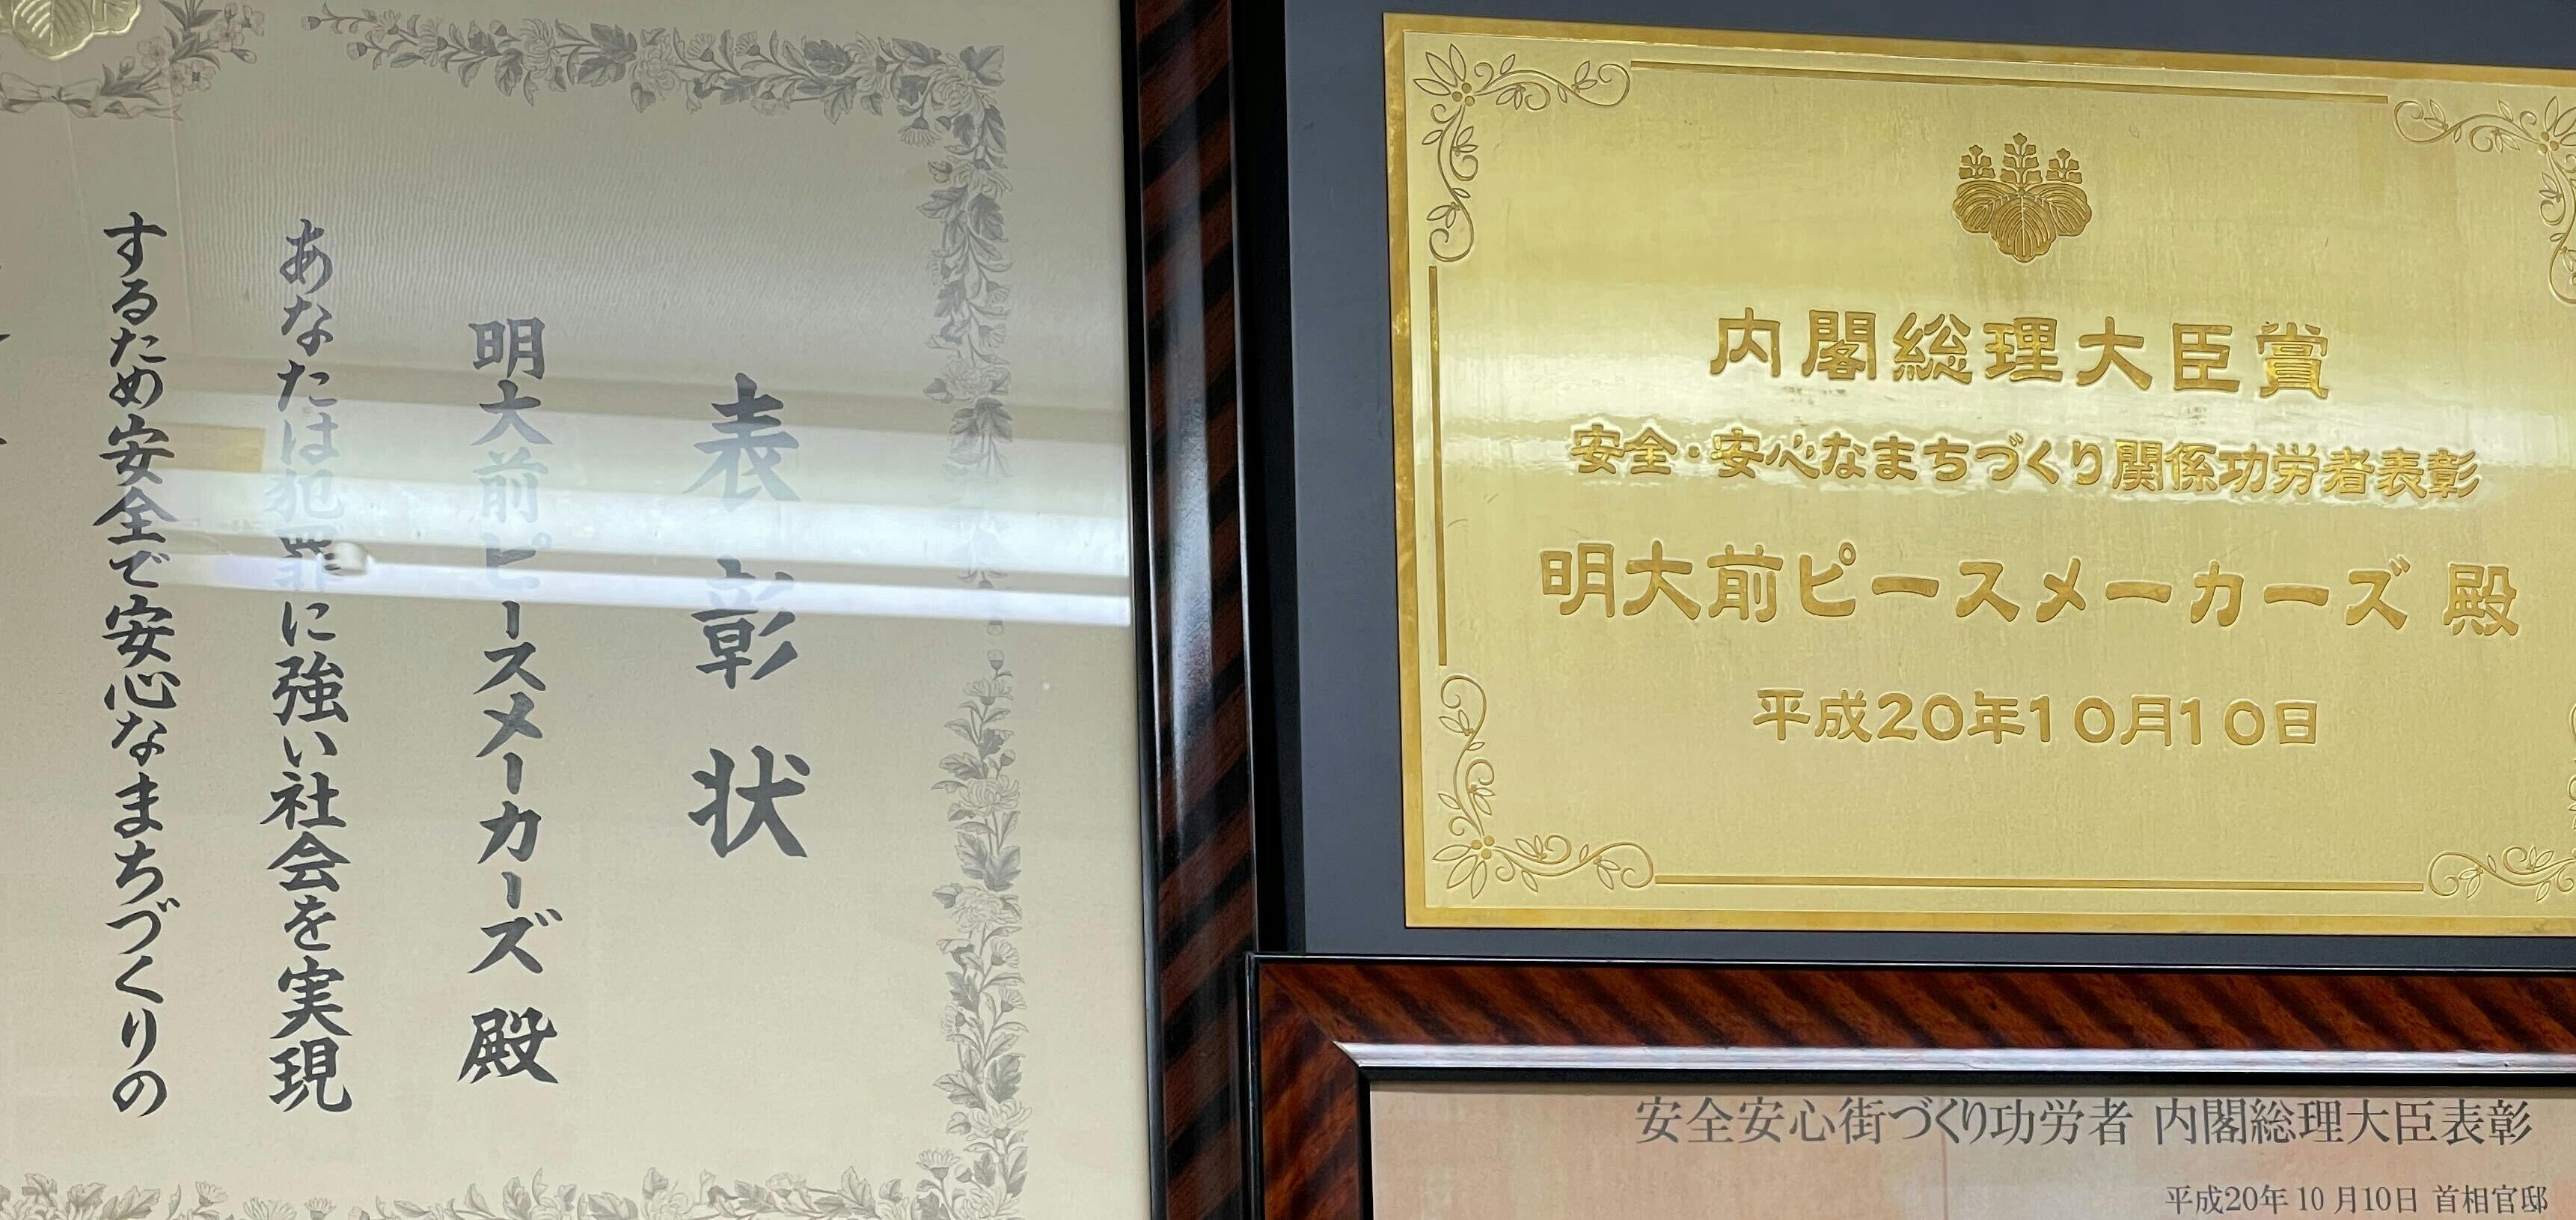 表彰状
明大前ピースメーカーズ 殿
あなたは犯罪に強い社会を実現
するため安全で安心なまちづくりの
内閣総理大臣賞
安全・安心なまちづくり関係功労者表彰
明大前ピースメーカーズ 殿
平成20年10月10日
安全安心街づくり功労者 内閣総理大臣表彰
平成20年10月10日 首相官邸